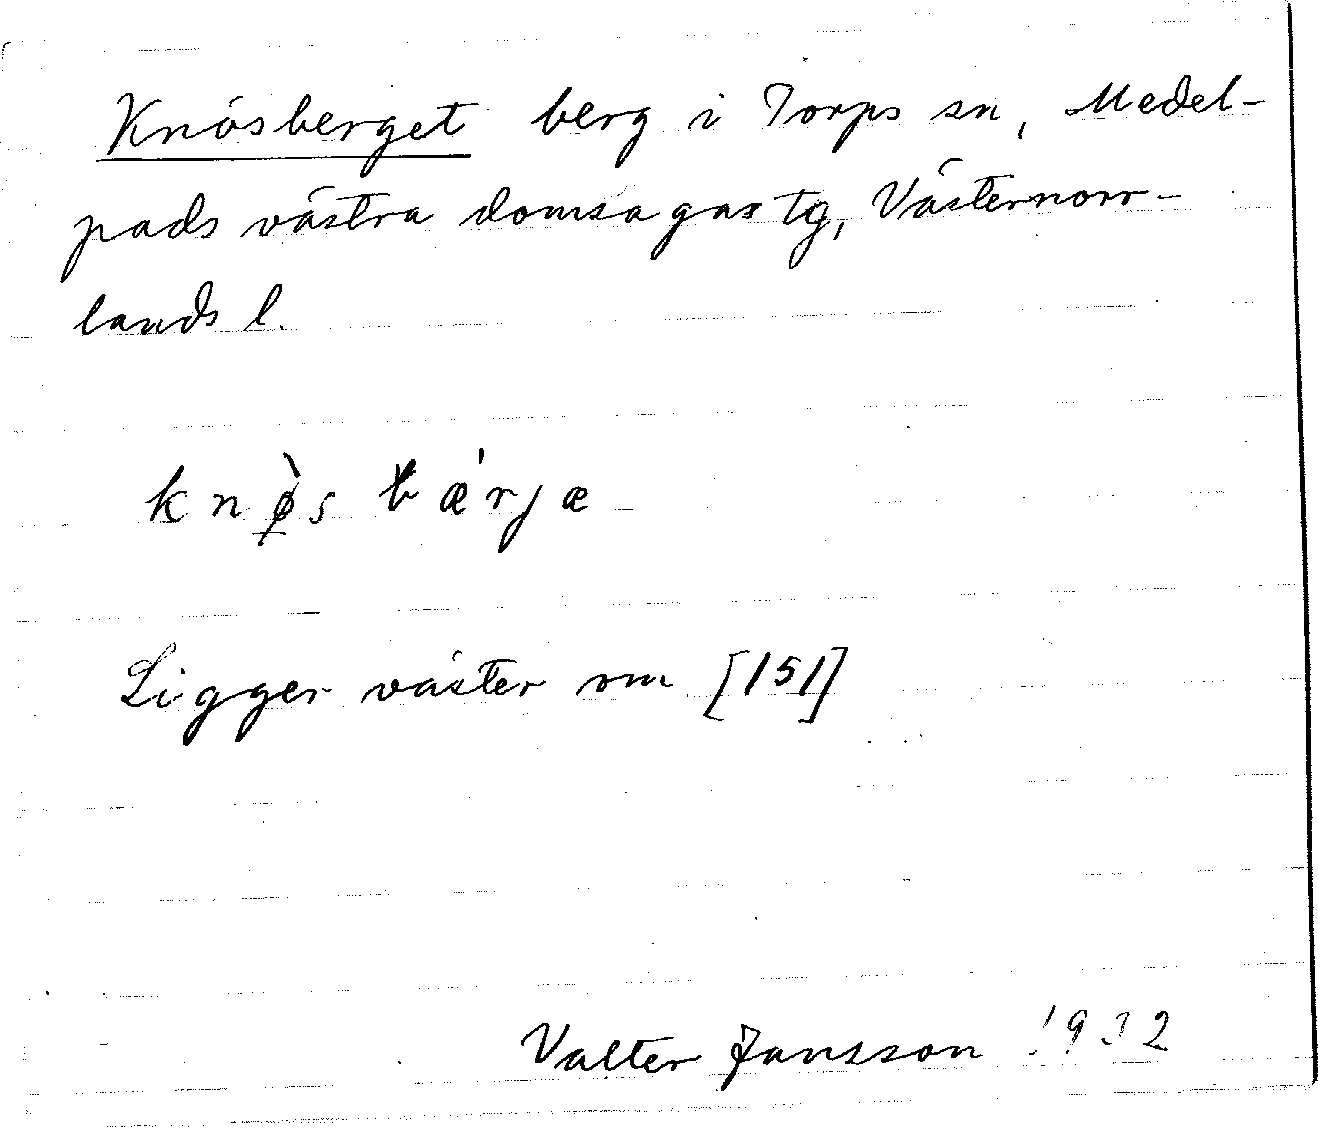 Knösberget berg i Torps sn, Medel-
pads västra domsagas tg, Västernorr-
lands l.
knø̀s bæ'rjæ
Ligger väster om [151]
Valter Jansson 1932